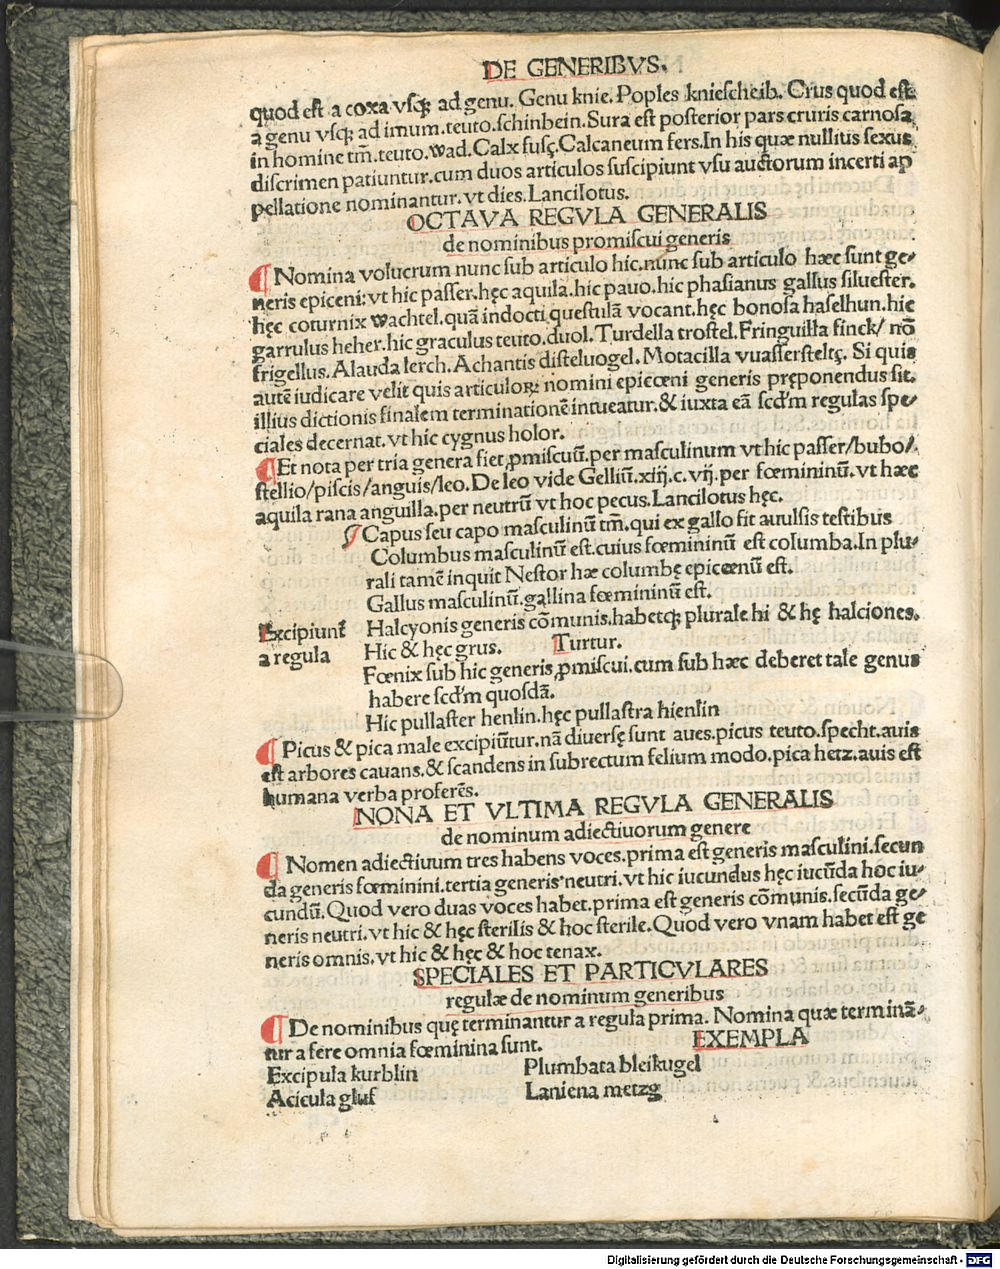 DE GENERIBVS.
quod est a coxa vsqꝫ ad genu. Genu knie. Poples kniescheib. Crus quod est
a genu vsqꝫ ad imum. teuto. schinbein. Sura est posterior pars cruris carnosa
in homine tm̄. teuto. wad. Calx fusȩ. Calcaneum fers. In his quæ nullius sexus
discrimen patiuntur. cum duos articulos suscipiunt vsu auctorum incerti ap
pellatione nominantur. vt dies. Lancilotus.
OCTAVA REGVLA GENERALIS
de nominibus promiscui generis
¶ Nomina volucrum nunc sub articulo hic. nunc sub articulo hæc sunt ge⸗
neris epiceni: vt hic passer. hęc aquila. hic pauo. hic phasianus gallus siluester.
hęc coturnix wachtel. quā indocti questulā vocant. hęc bonosa haselhun. hic
garrulus heher. hic graculus teuto. duol. Turdella trostel. Fringuilla finck/ nō
frigellus. Alauda lerch. Achantis disteluogel. Motacilla vuassersteltȩ. Si quis
autē iudicare velit quis articuloꝝ nomini epicœni generis pręponendus sit.
illius dictionis finalem terminationē intueatur. & iuxta eā scd'm regulas spe⸗
ciales decernat. vt hic cygnus holor.
¶ Et nota per tria genera fiet ꝓmiscuū. per masculinum vt hic passer/bubo/
stellio/piscis/anguis/leo. De leo vide Gelliū. xiij. c. vij. per fœmininū. vt hæc
aquila rana anguilla. per neutrū vt hoc pecus. Lancilotus hęc.
¶ Capus seu capo masculinū tm̄. qui ex gallo fit auulsis testibus
Columbus masculinū est. cuius fœmininū est columba. In plu⸗
rali tamē inquit Nestor hæ columbę epicœnū est.
Gallus masculinū. gallina fœmininū est.
Excipiunt̄ Halcyonis generis cōmunis. habetqꝫ plurale hi & hę halciones.
a regula Hic & hęc grus. Turtur.
Fœnix sub hic generis ꝓmiscui. cum sub hæc deberet tale genus
habere scd'm quosdā.
Hic pullaster henlin. hęc pullastra hienlin
¶ Picus & pica male excipiūtur. nā diuersę sunt aues. picus teuto. specht. auis
est arbores cauans. & scandens in subrectum felium modo. pica hetz. auis est
humana verba proferēs.
NONA ET VLTIMA REGVLA GENERALIS
de nominum adiectiuorum genere
¶ Nomen adiectiuum tres habens voces. prima est generis masculini. secun
da generis fœminini. tertia generis neutri. vt hic iucundus hęc iucūda hoc iu⸗
cundū. Quod vero duas voces habet. prima est generis cōmunis. secūda ge⸗
neris neutri. vt hic & hęc sterilis & hoc sterile. Quod vero vnam habet est ge
neris omnis. vt hic & hęc & hoc tenax.
SPECIALES ET PARTICVLARES
regulæ de nominum generibus
¶ De nominibus quę terminantur a regula prima. Nomina quæ terminā⸗
tur a fere omnia fœminina sunt. EXEMPLA
Excipula kurblin Plumbata bleikugel
Acicula gluf Laniena metzg
Digitalisierung gefördert durch die Deutsche Forschungsgemeinschaft - DFG